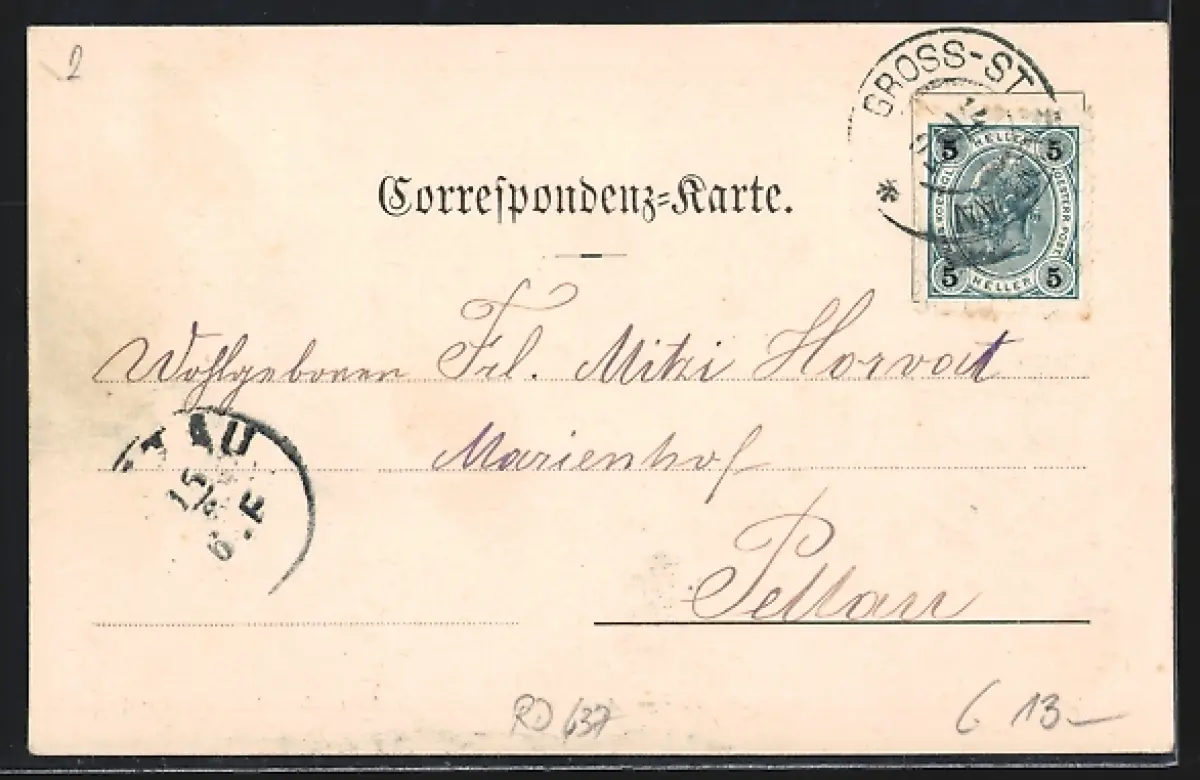 2
GROSS-ST
14
5 HELLER 5
OESTERR. POST.
5 HELLER 5
Correspondenz-Karte.
Wohlgeboren Frl. Mitzi Horvat
TAU
15
6. F
Marienhof
Pettau
RD 637
13-